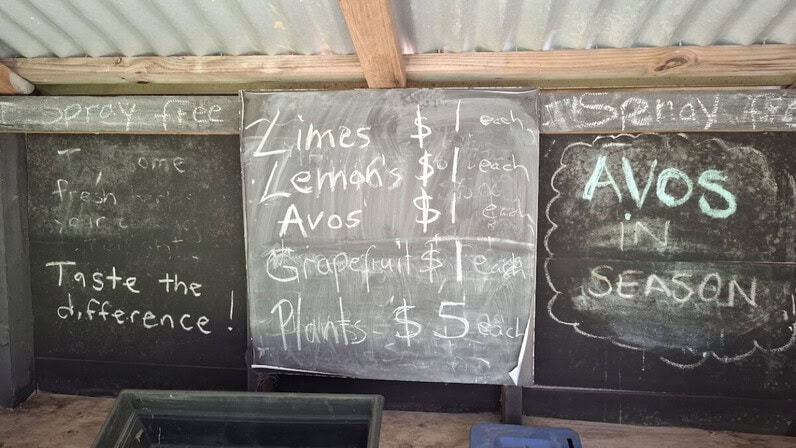 Spray free
Spray free
fresh
Taste the
difference!
Limes $1 each
Lemon's $1 each
Avos $1 each
Grapefruit $1 each
Plants - $5 each
Avos
in
SEASON!